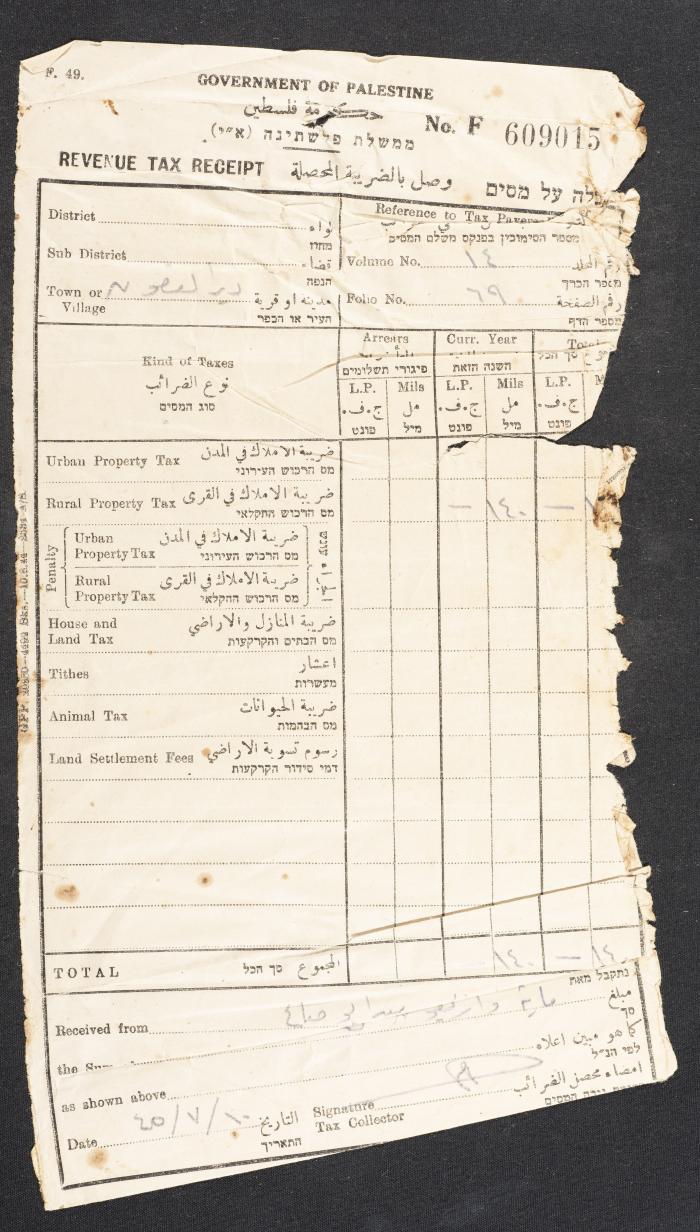 F. 49.
GOVERNMENT OF PALESTINE
حكومة فلسطين
ממשלת פלשתינה (א״י)
No. F 609015
REVENUE TAX RECEIPT وصل بالضريبة المحصلة על מסים
District لواء
מחוז
Sub District قضاء
הנפה
Town or Village مدينة او قرية
העיר או הכפר
Reference to Tax Payers
מספר הסימוכין בפנקס משלם המסים
Volume No. ١٤ رقم المجلد
מספר הכרך
Folio No. ٦٩ رقم الصفحة
מספר הדף
Kind of Taxes
نوع الضرائب
סוג המסים
Arrears
פיגורי תשלומים
Curr. Year
השנה הזאת
Total
סך הכל
L.P. Mils L.P. Mils L.P. M
ج.ف. مل ج.ف. مل ج.ف.
פונט מיל פונט מיל פונט
Urban Property Tax ضريبة الاملاك في المدن
מס הרכוש העירוני
Rural Property Tax ضريبة الاملاك في القرى — ١٤٠ —
מס הרכוש החקלאי
Penalty
Urban Property Tax ضريبة الاملاك في المدن
מס הרכוש העירוני
Rural Property Tax ضريبة الاملاك في القرى
מס הרכוש החקלאי
House and Land Tax ضريبة المنازل والاراضي
מס הבתים והקרקעות
Tithes اعشار
מעשרות
Animal Tax ضريبة الحيوانات
מס הבהמות
Land Settlement Fees رسوم تسوية الاراضي
דמי סידור הקרקעות
TOTAL סך הכל المجموع — ١٤٠ — ١٤٠
נתקבל מאת
Received from مبلغ
סך
the Sum كما هو مبين اعلاه
as shown above לפי הנ״ל
Signature Tax Collector امضاء محصل الضرائب
המסים
Date ٤٥/٧/١٠ التاريخ
התאריך